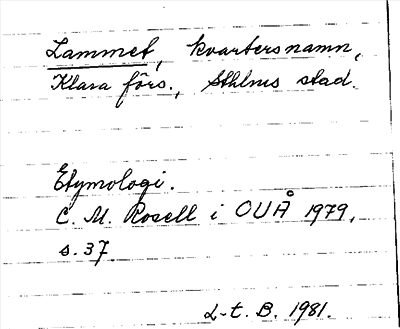 Lammet, kvartersnamn,
Klara förs., Sthlms stad.
Etymologi.
C. M. Rosell i OUÅ 1979,
s. 37
L-t. B. 1981.